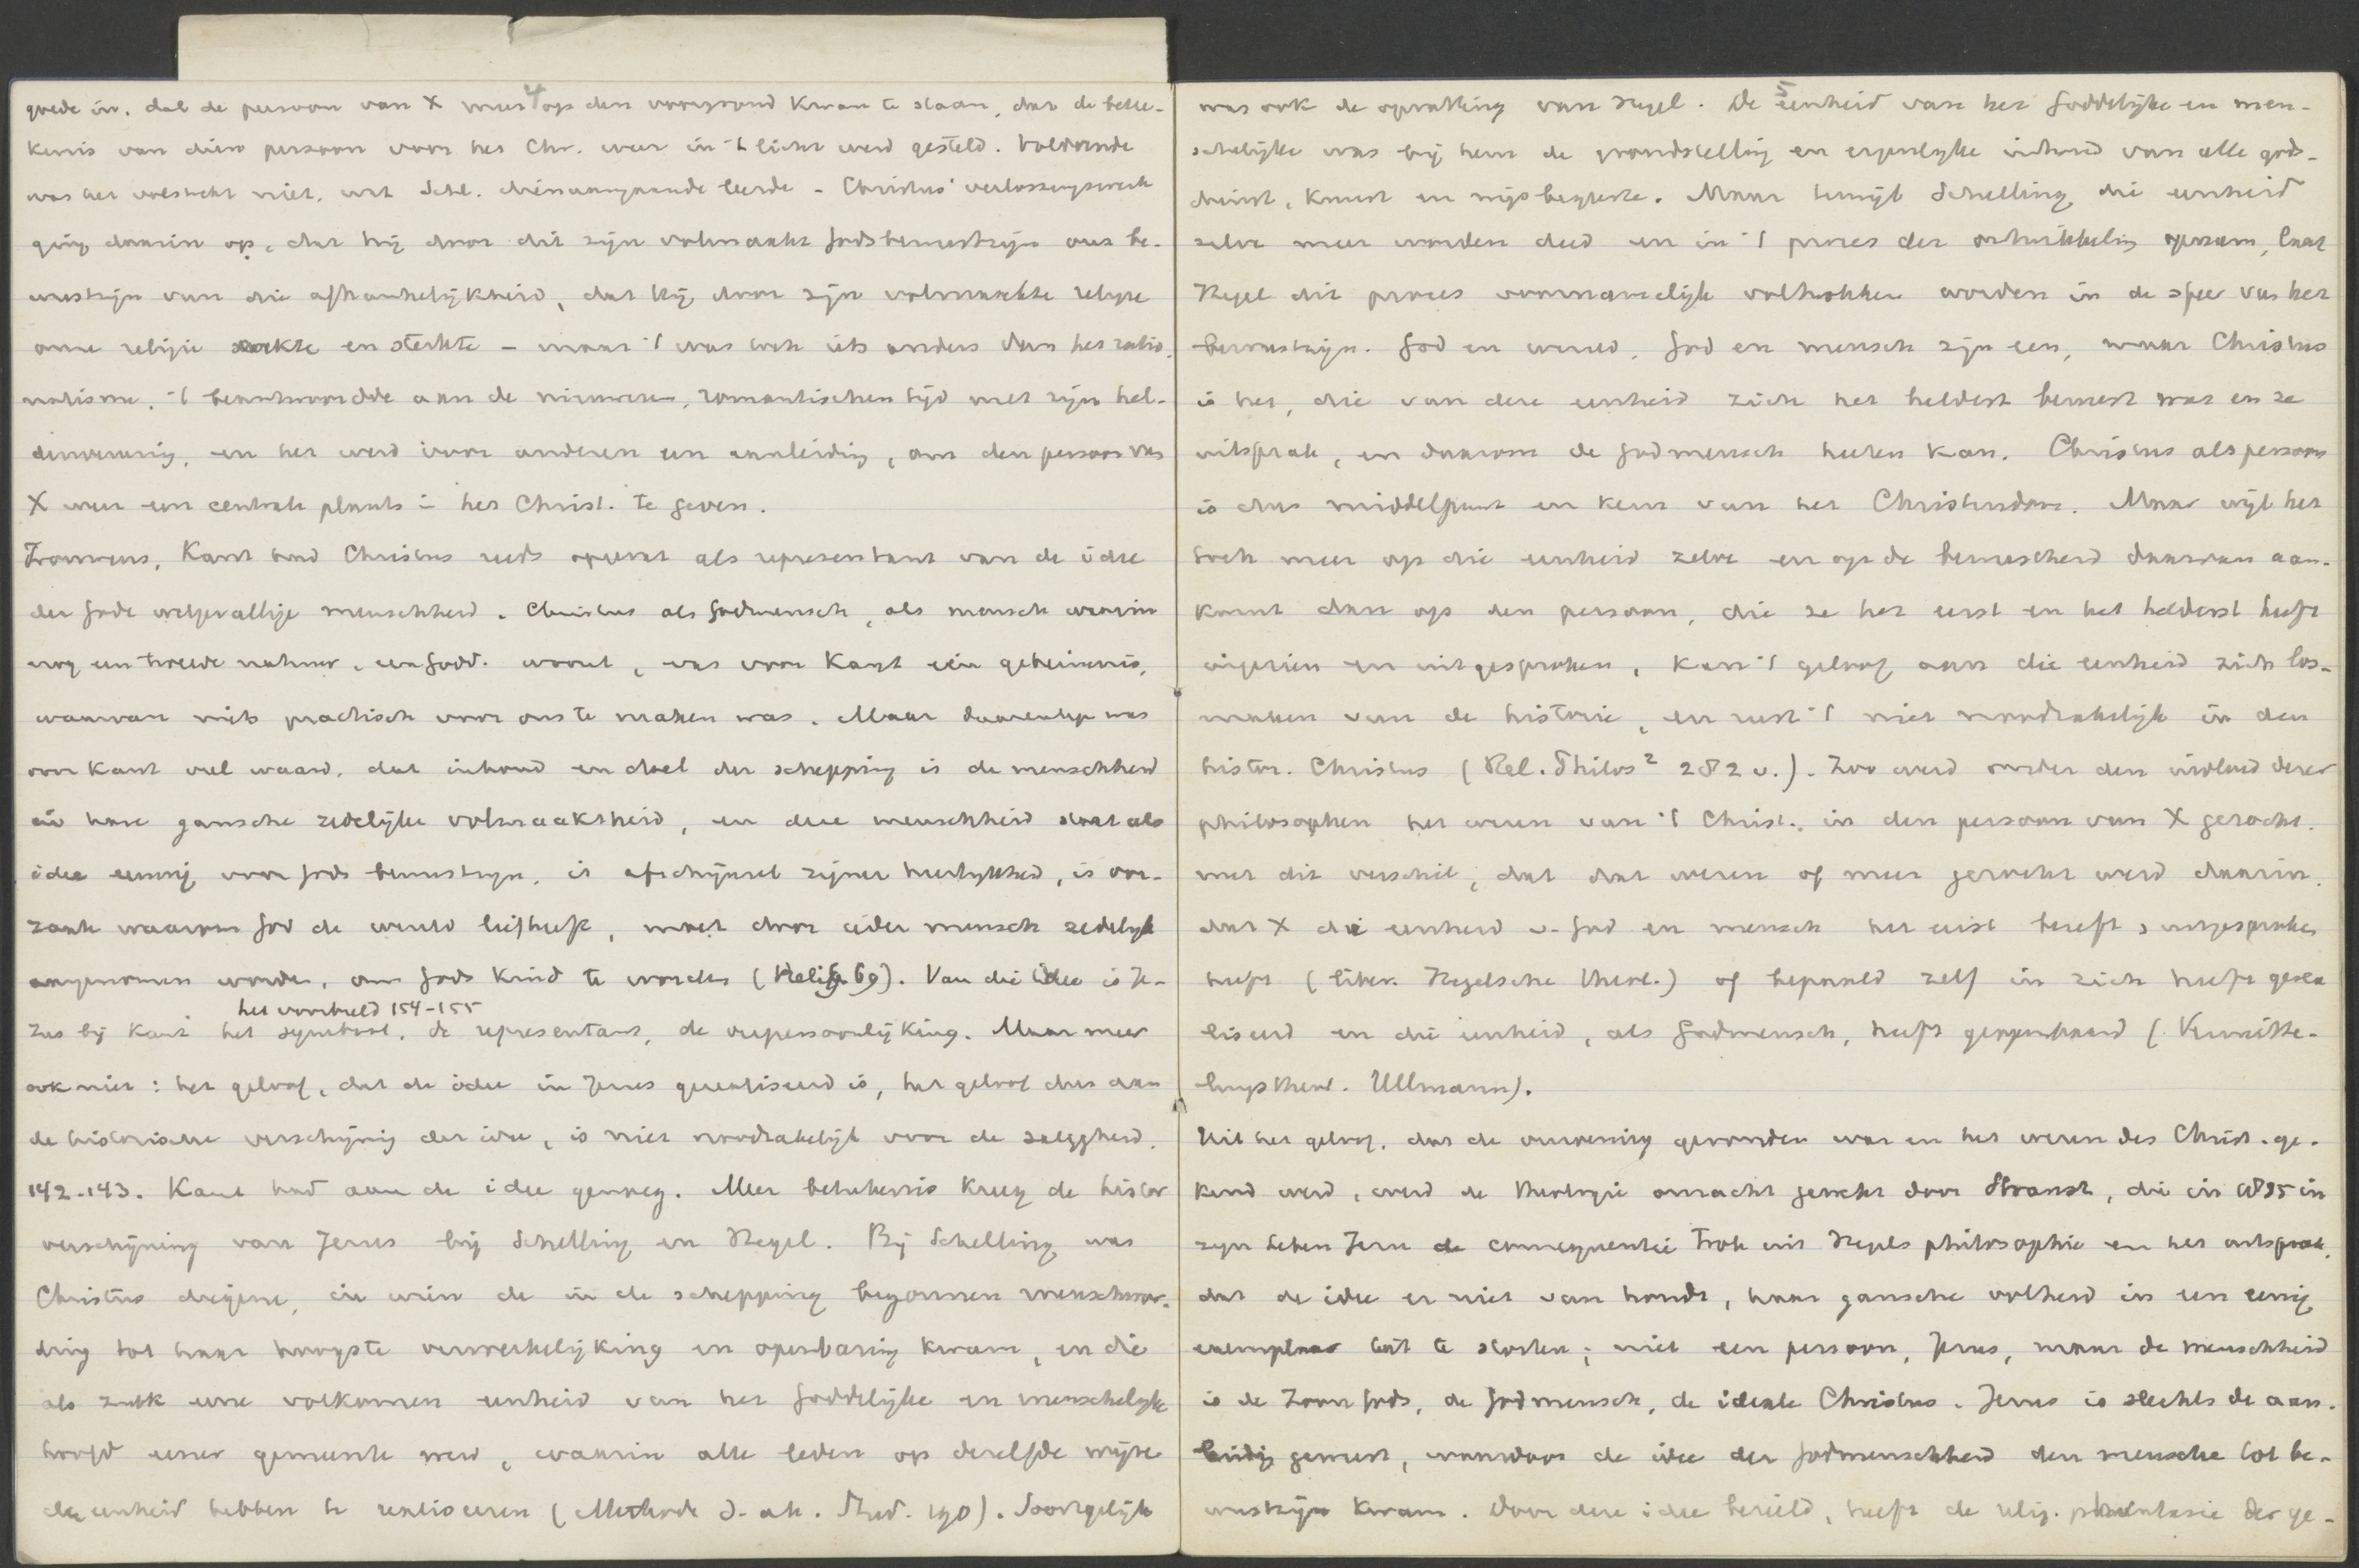 4
goede in, dat de persoon van X weer op den voorgrond kwam te staan, dat de betee-
kenis van dien persoon voor het Chr. weer in 't licht werd gesteld. Voldoende
was het volstrekt niet, wat Schl. dienaangaande leerde - Christus' verlossingswerk
ging daarin op, dat hij door dit zijn volmaakt Godsbewustzijn ons be-
wustzijn van die afhankelijkheid, dat hij door zijn volmaakte religie
onze religie wekte en sterkte - maar 't was toch iets anders dan het ratio-
nalisme. 't beantwoordde aan de nieuweren, romantischen tijd met zijn hel-
denvereering, en het werd voor anderen een aanleiding, om den persoon van
X weer een centrale plaats in het Christ. te geven.
Trouwens, Kant had Christus reeds opgevat als representant van de idee
der Gode welgevallige menschheid. Christus als Godmensch, als mensch waarin
nog een tweede natuur, een godd. woont, was voor Kant een geheimenis,
waarvan niets practisch voor ons te maken was. Maar daarentegen was
voor Kant veel waard, dat inhoud en doel der schepping is de menschheid
in hare gansche zedelijke volmaaktheid, en deze menschheid staat als
idee eeuwig voor Gods bewustzijn, is afschijnsel zijner heerlijkheid, is oor-
zaak waarom God de wereld liefheeft, moet door ieder mensch zedelijk
aangenomen worden, om Gods kind te worden (Relig. 69). Van die idee is Je-
het voorbeeld 154-155
zus bij Kant het symbool, de representant, de verpersoonlijking. Maar meer
ook niet: het geloof, dat de idee in Jezus gerealiseerd is, het geloof dus aan
de historische verschijning der idee, is niet noodzakelijk voor de zaligheid.
142-143. Kant had aan de idee genoeg. Meer beteekenis kreeg de histor
verschijning van Jezus bij Schelling en Hegel. Bij Schelling was
Christus degene, in wien de in de schepping begonnen menschwor-
ding tot haar hoogste verwerkelijking en openbaring kwam, en die
als zulk eene volkomen eenheid van het goddelijke en menschelijke
hoofd eener gemeente werd, waarin alle leden op dezelfde wijze
de eenheid hebben te realiseeren (Methode d. ak. Stud. 190). Soortgelijk
5
was ook de opvatting van Hegel. De eenheid van het goddelijke en men-
schelijke was bij hem de grondstelling en eigenlijke inhoud van alle gods-
dienst, kunst en wijsbegeerte. Maar terwijl Schelling die eenheid
zelve meer worden deed en in 't proces der ontwikkeling opnam, laat
Hegel dit proces voornamelijk voltrokken worden in de sfeer van het
bewustzijn. God en wereld, God en mensch zijn een, maar Christus
is het, die van deze eenheid zich het helderst bewust was en ze
uitsprak, en daarom de Godmensch heeten kan. Christus als persoon
is dus middelpunt en kern van het Christendom. Maar wijl het
toch meer op die eenheid zelve en op de bewustheid daarvan aan-
komt dan op den persoon, die ze het eerst en het helderst heeft
ingezien en uitgesproken, kan 't geloof aan die eenheid zich los-
maken van de historie, en rust 't niet noodzakelijk in den
histor. Christus (Rel. Philos² 282 v.). Zoo werd onder den invloed dezer
philosophen het wezen van 't Christ. in den persoon van X gezocht.
met dit verschil, dat dat wezen of meer gezocht werd daarin,
dat X die eenheid v. God en mensch het eerst beseft, uitgesproken
heeft (liber. Hegelsche theol.) of bepaald zelf in zich heeft gerea
liseerd en die eenheid, als Godmensch, heeft geopenbaard (Vermitte-
lungstheol. Ullmann).
Uit het geloof, dat de verzoening gevonden was en het wezen des Christ. ge-
kend werd, werd de theologie onzacht gewekt door Strauss, die in 1835 in
zijn Leben Jesu de consequentie trok uit Hegels philosophie en het uitsprak,
dat de idee er niet van houdt, haar gansche volheid in een eenig
exemplaar uit te storten; niet een persoon, Jezus, maar de menschheid
is de Zoon Gods, de Godmensch, de ideale Christus. Jezus is slechts de aan-
leiding geweest, waardoor de idee der Godmenschheid den mensche tot be-
wustzijn kwam. Door deze idee bezield, heeft de relig. phantasie der ge-